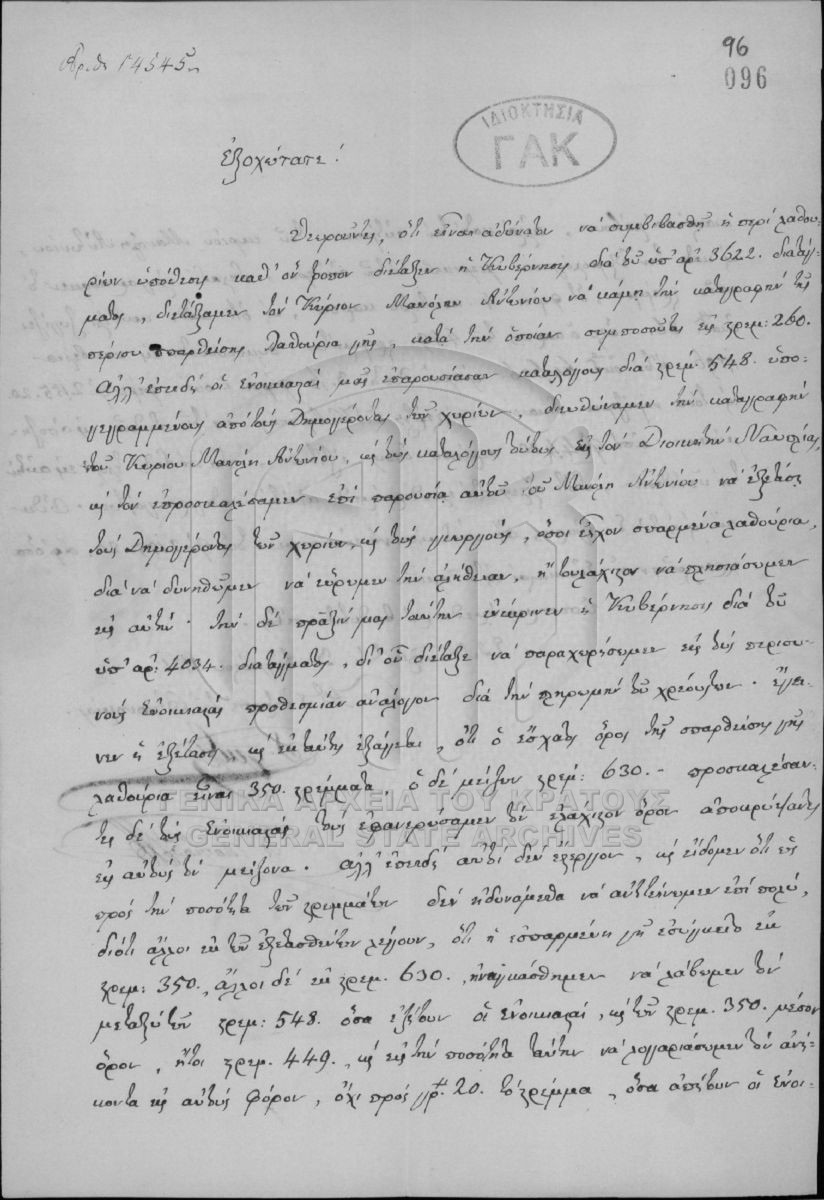 96
096
Ἀριθ. 14545
ΙΔΙΟΚΤΗΣΙΑ
ΓΑΚ
Ἐξοχώτατε!
Θεωροῦντες, ὅτι εἶναι ἀδύνατον νὰ συμβιβασθῇ ἡ περὶ λαθου-
ρίων ὑπόθεσις καθ' ὃν τρόπον διέταξεν ἡ Κυβέρνησις διὰ τοῦ ὑπ' ἀρ. 3622. διατάγ-
ματος, διετάξαμεν τὸν Κύριον Μανόλην Ἀντωνίου νὰ κάμῃ τὴν καταγραφὴν τῆς
πέρισυ σπαρθείσης λαθούρια γῆς, κατὰ τὴν ὁποίαν συμποσοῦται εἰς ζρέμ: 260.
Ἀλλ' ἐπειδὴ οἱ ἐνοικιασταὶ μᾶς ἐπαρουσίασαν καταλόγους διὰ ζρέμ. 548. ὑπο-
γεγραμμένους ἀπὸ τοὺς Δημογέροντας τῶν χωρίων, διευθύναμεν τὴν καταγραφὴν
τοῦ Κυρίου Μανόλη Ἀντωνίου, καὶ τοὺς καταλόγους τούτους εἰς τὸν Διοικητὴν Ναυπλίας,
καὶ τὸν ἐπροσκαλέσαμεν ἐπὶ παρουσίᾳ αὐτοῦ τοῦ Μανόλη Ἀντωνίου νὰ ἐξετάσῃ
τοὺς Δημογέροντας τῶν χωρίων, καὶ τοὺς γεωργούς, ὅσοι εἶχον σπαρμένα λαθούρια,
διὰ νὰ δυνηθῶμεν νὰ εὕρωμεν τὴν ἀλήθειαν, ἢ τουλάχιστον νὰ πλησιάσωμεν
εἰς αὐτήν. τὴν δὲ πρᾶξίν μας ταύτην ἐνέκρινεν ἡ Κυβέρνησις διὰ τοῦ
ὑπ' ἀρ: 4034. διατάγματος, δι' οὗ διέταξε νὰ παραχωρήσωμεν εἰς τοὺς περισυ-
νοὺς ἐνοικιαστὰς προθεσμίαν ἀνάλογον διὰ τὴν πληρωμὴν τοῦ χρέους των. Ἔγει-
νεν ἡ ἐξέτασις, καὶ ἐκ ταύτης ἐξάγεται, ὅτι ὁ ἔσχατος ὅρος τῆς σπαρθείσης γῆς
λαθούρια εἶναι 350. ζρέμματα, ὁ δὲ μείζων ζρέμ: 630. - προσκαλέσαν-
τες δὲ τοὺς ἐνοικιαστὰς τοὺς ἐφανερώσαμεν τὸν ἐλάχιστον ὅρον ἀποκρύψαντες
εἰς αὐτοὺς τὸν μείζονα. Ἀλλ' ἐπειδὴ αὐτοὶ δὲν ἔστεργον, καὶ εἴδομεν ὅτι ὡς
πρὸς τὴν ποσότητα τῶν ζρεμμάτων δὲν ἠδυνάμεθα νὰ ἀντιτείνωμεν ἐπὶ πολύ,
διότι ἄλλοι ἐκ τῶν ἐξετασθέντων λέγουν, ὅτι ἡ ἐσπαρμένη γῆ ἐσύγκειτο ἐκ
ζρεμ: 350., ἄλλοι δὲ ἐκ ζρεμ. 630., ἠναγκάσθημεν νὰ λάβωμεν τὸν
μεταξὺ τῶν ζρεμ: 548. ὅσα ἐζήτουν οἱ ἐνοικιασταί, καὶ τῶν ζρεμ. 350. μέσον
ὅρον, ἤτοι ζρεμ. 449., καὶ εἰς τὴν ποσότητα ταύτην νὰ λογαριάσωμεν τὸν ἀνή-
κοντα εἰς αὐτοὺς φόρον, ὄχι πρὸς γρ. 20. τὸ ζρέμμα, ὅσα ἀπῄτουν οἱ ἐνοι-
ΓΕΝΙΚΑ ΑΡΧΕΙΑ ΤΟΥ ΚΡΑΤΟΥΣ
GENERAL STATE ARCHIVES